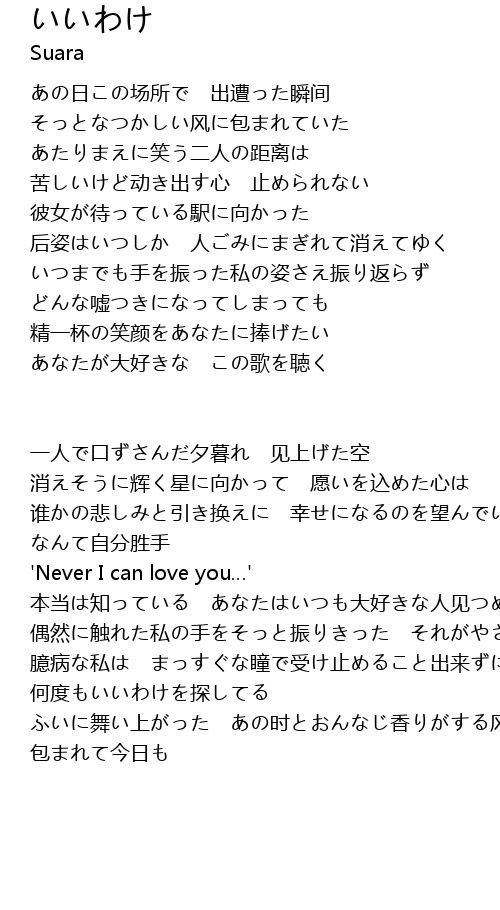 いいわけ
Suara
あの日この场所で　出遭った瞬间
そっとなつかしい风に包まれていた
あたりまえに笑う二人の距离は
苦しいけど动き出す心　止められない
彼女が待っている駅に向かった
后姿はいつしか　人ごみにまぎれて消えてゆく
いつまでも手を振った私の姿さえ振り返らず
どんな嘘つきになってしまっても
精一杯の笑颜をあなたに捧げたい
あなたが大好きな　この歌を聴く
一人で口ずさんだ夕暮れ　见上げた空
消えそうに辉く星に向かって　愿いを込めた心は
谁かの悲しみと引き换えに　幸せになるのを望んでい
なんて自分胜手
'Never I can love you...'
本当は知っている　あなたはいつも大好きな人见つ
偶然に触れた私の手をそっと振りきった　それがや
臆病な私は　まっすぐな瞳で受け止めること出来ずに
何度もいいわけを探してる
ふいに舞い上がった　あの时とおんなじ香りがする风
包まれて今日も